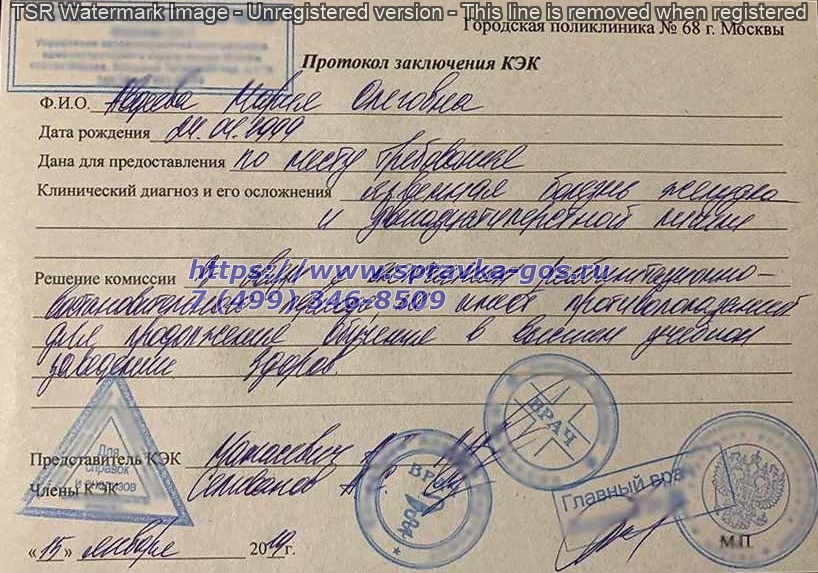 TSR Watermark Image - Unregistered version - This line is removed when registered
Городская поликлиника № 68 г. Москвы
Протокол заключения КЭК
Ф.И.О. Авдеева Мария Олеговна
Дата рождения
Дана для предоставления по месту требования
Клинический диагноз и его осложнения язвенная болезнь желудка
и двенадцатиперстной кишки
https://www.spravka-gos.ru
Решение комиссии В связи с реабилитационно-
7 (499) 346-8509
не имеет противопоказаний
для продолжение обучение в высшем учебном
заведении. Здоров.
Для
справок
и анализов
ВРАЧ
Представитель КЭК
Члены КЭК
ВРАЧ
Главный врач
М.П.
«15» января 2019г.